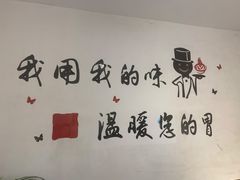 我用我的味
温暖您的胃